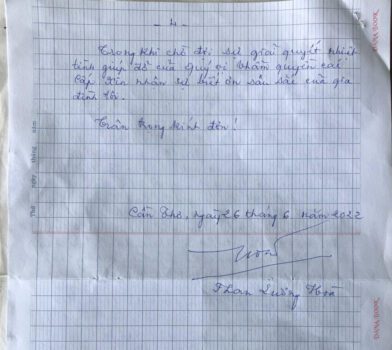 - 4 -
Trong khi chờ đợi sự giải quyết nhiệt
tình giúp đỡ của Quý vị thẩm quyền các
cấp đón nhân sự biết ơn sâu sắc của gia
đình tôi.
Trân trọng kính đơn!
Cần Thơ, ngày 26 tháng 6 năm 2022
Hoà
Phan Lương Hoà
Thứ ngày tháng năm